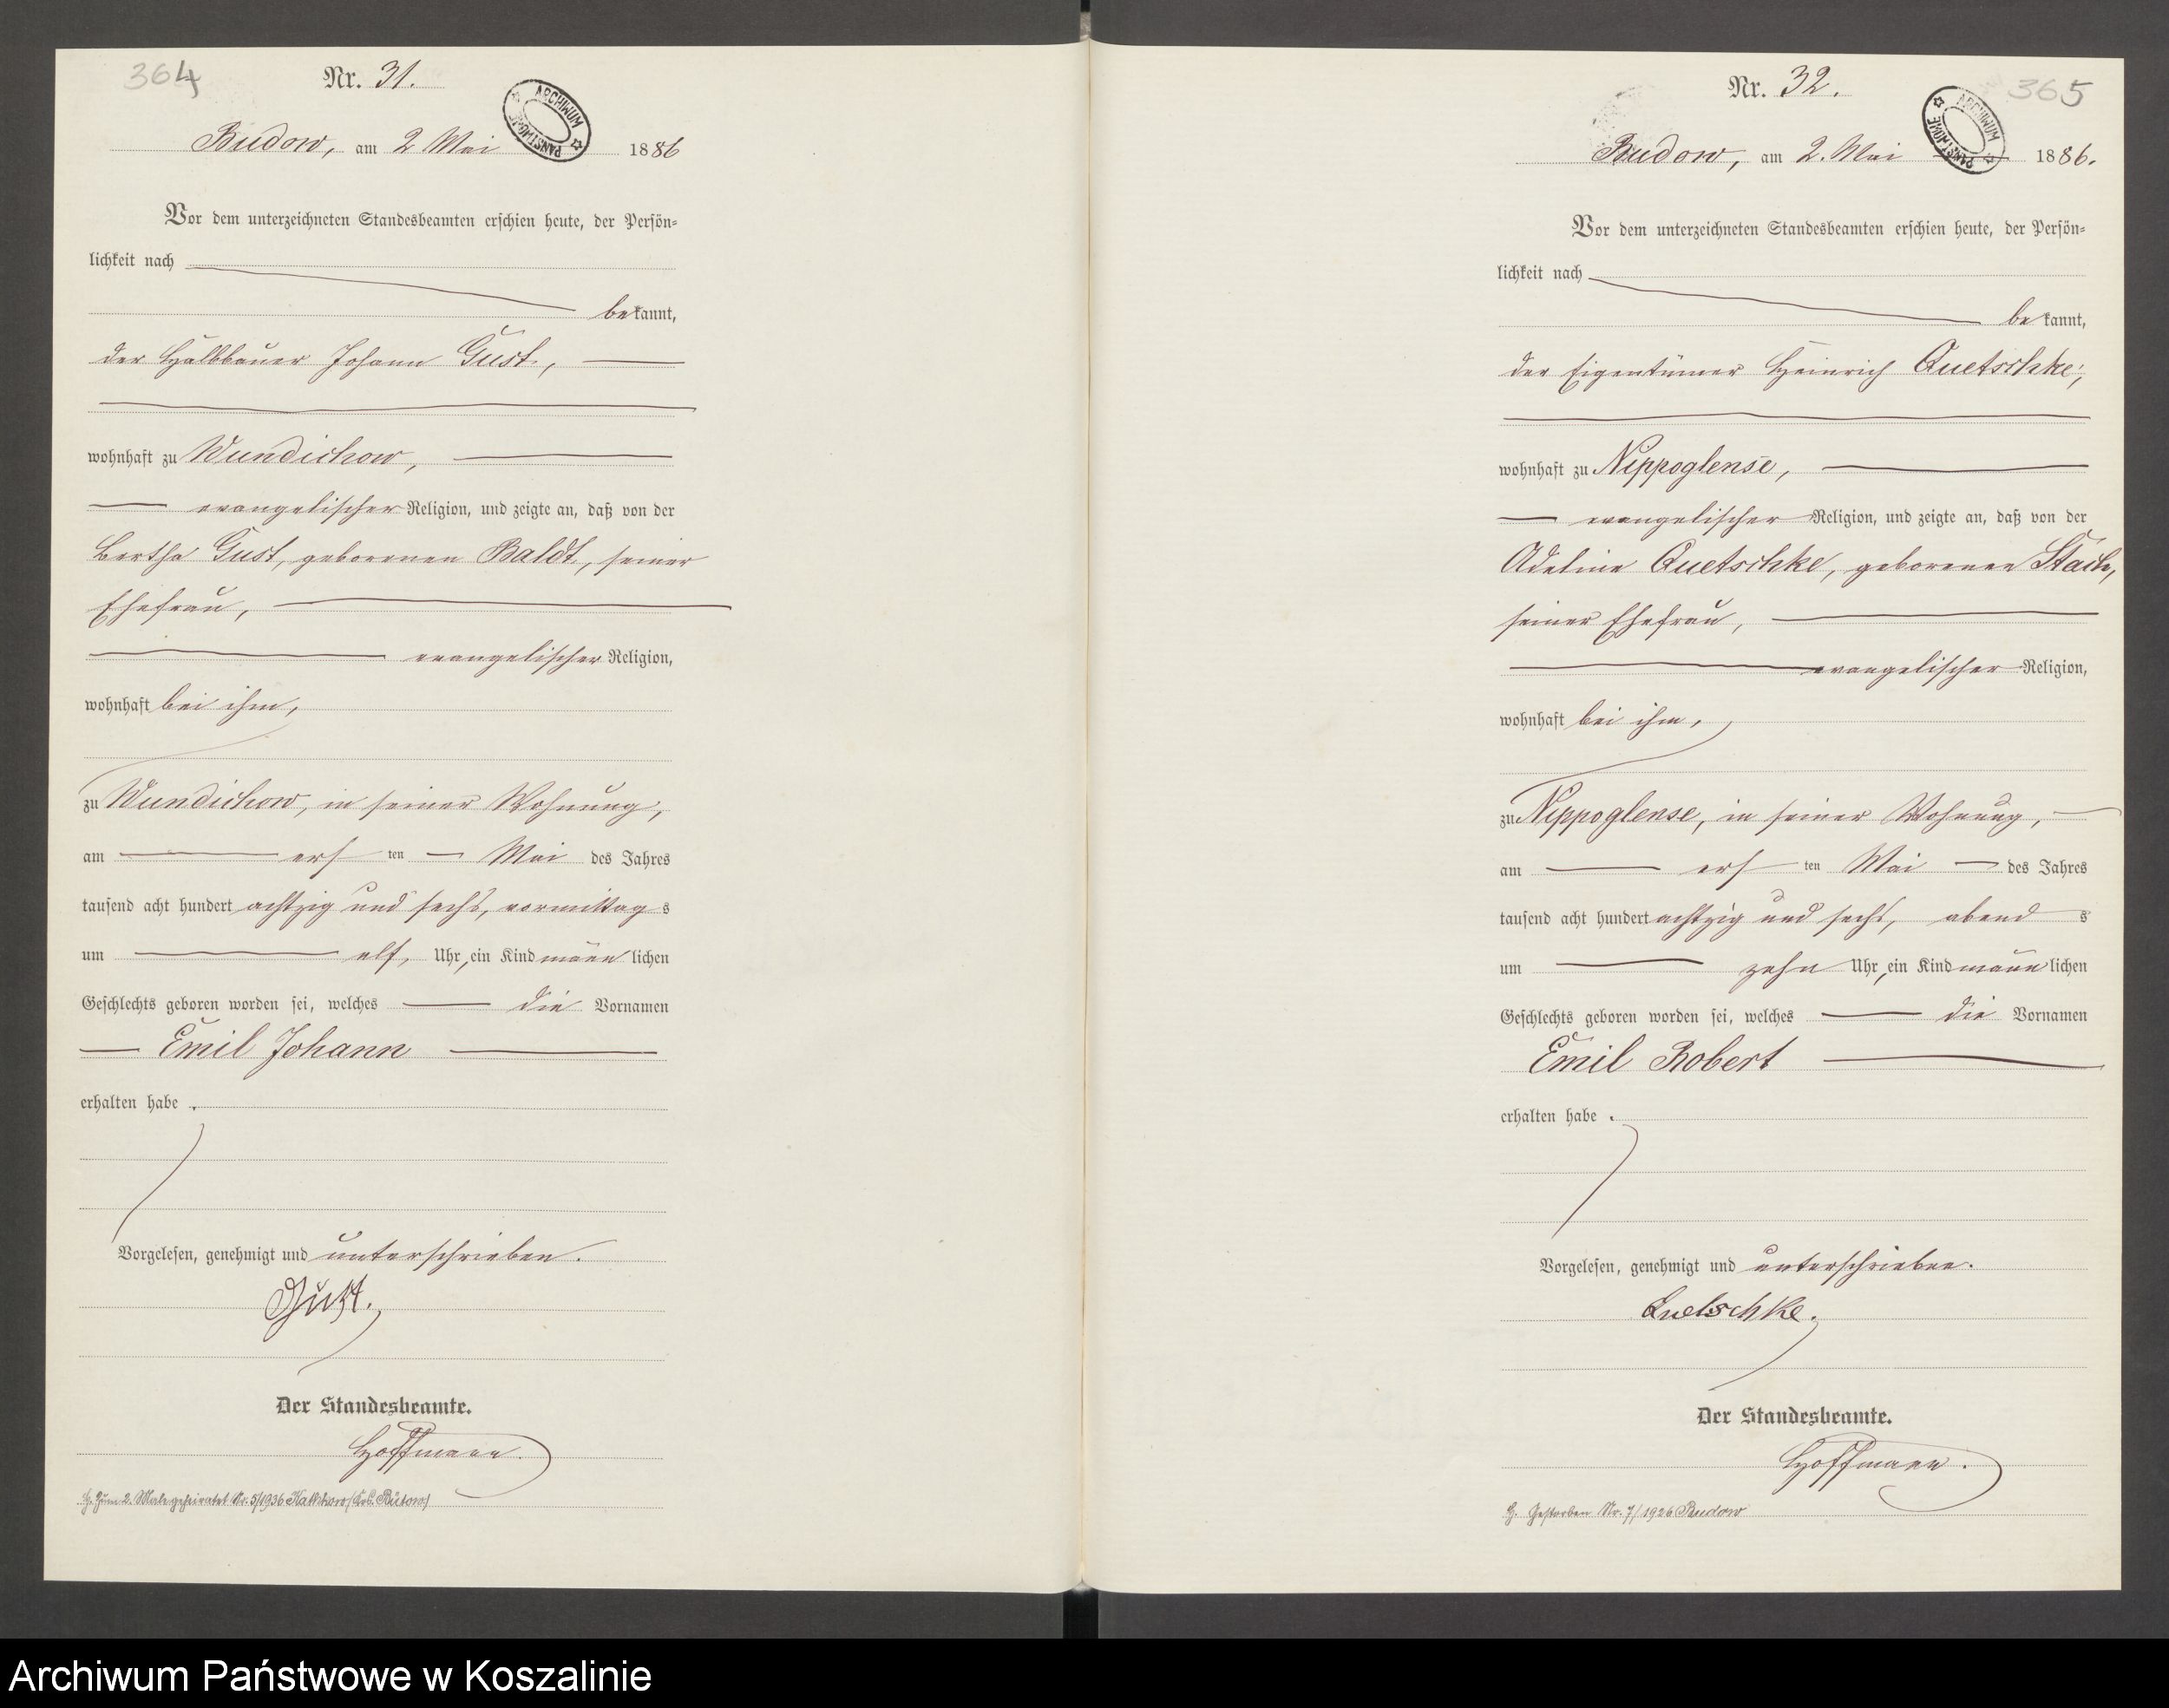 364
Nr. 31.
ARCHIWUM PAŃSTWOWE
Budow, am 2 Mai 1886
Vor dem unterzeichneten Standesbeamten erschien heute, der Persön-
lichkeit nach
bekannt,
der Halbbauer Johann Gust,
wohnhaft zu Wundichow,
evangelischer Religion, und zeigte an, daß von der
Bertha Gust, geborenen Baldt, seiner
Ehefrau,
evangelischer Religion,
wohnhaft bei ihm,
zu Wundichow, in seiner Wohnung,
am ersten Mai des Jahres
tausend acht hundert achtzig und sechs, vormittags
um elf, Uhr, ein Kind männlichen
Geschlechts geboren worden sei, welches die Vornamen
Emil Johann
erhalten habe.
Vorgelesen, genehmigt und unterschrieben.
Gust.
Der Standesbeamte.
Hoffmann.
H. Zum 2. Male geheiratet Nr. 5/1936
365
Nr. 32.
ARCHIWUM PAŃSTWOWE
Budow, am 2. Mai 1886.
Vor dem unterzeichneten Standesbeamten erschien heute, der Persön-
lichkeit nach
bekannt,
der Eigentümer Heinrich Quetschke,
wohnhaft zu Nippoglense,
evangelischer Religion, und zeigte an, daß von der
Adeline Quetschke, geborenen
seiner Ehefrau,
evangelischer Religion,
wohnhaft bei ihm,
zu Nippoglense, in seiner Wohnung,
am ersten Mai des Jahres
tausend acht hundert achtzig und sechs, abends
um zehn Uhr, ein Kind männlichen
Geschlechts geboren worden sei, welches die Vornamen
Emil Robert
erhalten habe.
Vorgelesen, genehmigt und unterschrieben.
Quetschke.
Der Standesbeamte.
Hoffmann.
H. Gestorben Nr. 7/1926 Budow
Archiwum Państwowe w Koszalinie